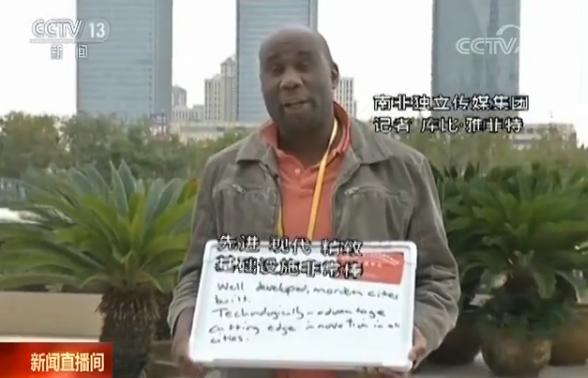 CCTV 13
新闻
CCTV
南非独立传媒集团
记者 库比·雅非特
先进 现代 精致
基础设施非常棒
Well developed, mordern cities
built.
Technologically-advantage
cutting edge innovation in all
cities.
新闻直播间